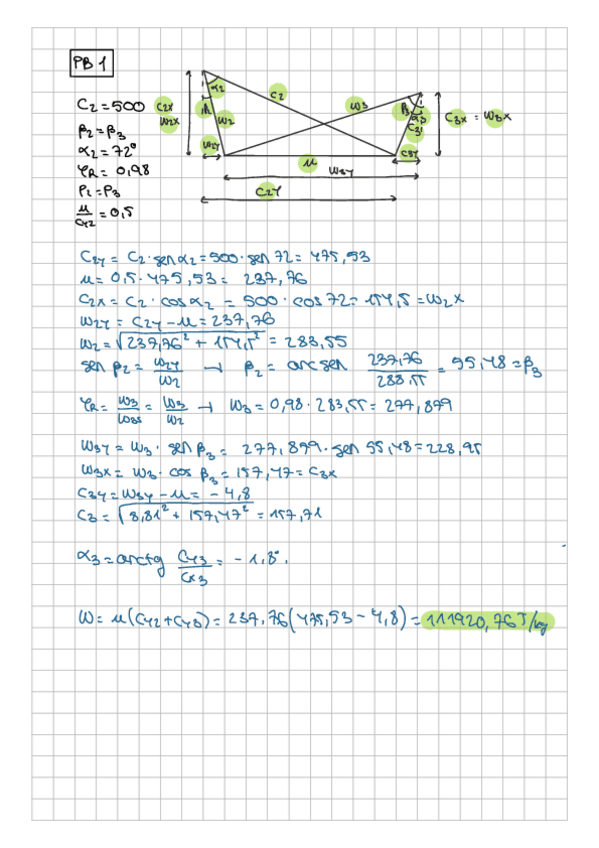 PB 1
C2 = 500
β2 = β3
α2 = 72°
φR = 0,98
P2 = P3
u/Cy2 = 0,5
C2x
W2x
α2
W2
C2
W3
β3
α3
C3
C3x = W3x
W2y
u
C3y
W3y
C2y
C2y = C2 · sen α2 = 500 · sen 72 = 475,53
u = 0,5 · 475,53 = 237,76
C2x = C2 · cos α2 = 500 · cos 72 = 154,5 = W2x
W2y = C2y - u = 237,76
W2 = √237,76² + 154,5² = 283,55
sen β2 = W2y/W2 → β2 = arcsen 237,76/283,55 = 55,48 = β3
φR = W3/W3s = W3/W2 → W3 = 0,98 · 283,55 = 277,879
W3y = W3 · sen β3 = 277,879 · sen 55,48 = 228,95
W3x = W3 · cos β3 = 157,47 = C3x
C3y = W3y - u = - 4,8
C3 = √8,81² + 157,47² = 157,71
α3 = arctg Cy3/Cx3 = - 1,8°.
W = u(Cy2 + Cy3) = 237,76(475,53 - 4,8) = 111920,76 J/kg